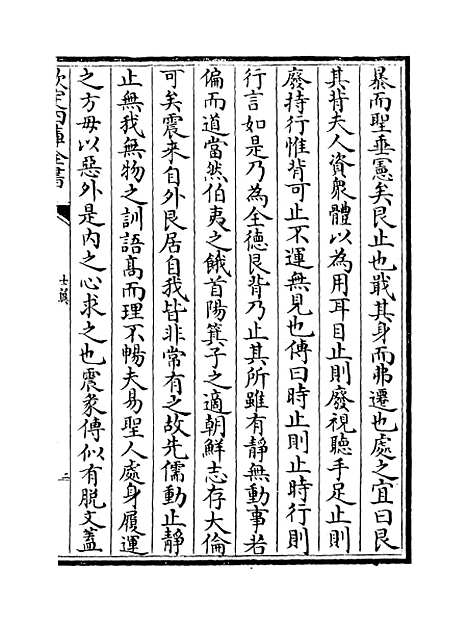 暴而聖垂憲矣艮止也戢其身而弗遷也處之宜曰艮
其背夫人資衆體以為用耳目止則廢視聽手足止則
廢持行惟背可止不運無見也傳曰時止則止時行則
行言如是乃為全徳艮背乃止其所雖有靜無動事若
偏而道當然伯夷之餓首陽箕子之適朝鮮志存大倫
可矣震來自外艮居自我皆非常有之故先儒動止靜
止無我無物之訓語髙而理不暢夫易聖人處身履運
之方毋以惡外是内之心求之也震彖傳似有脱文蓋
欽定四庫全書
士翼
三